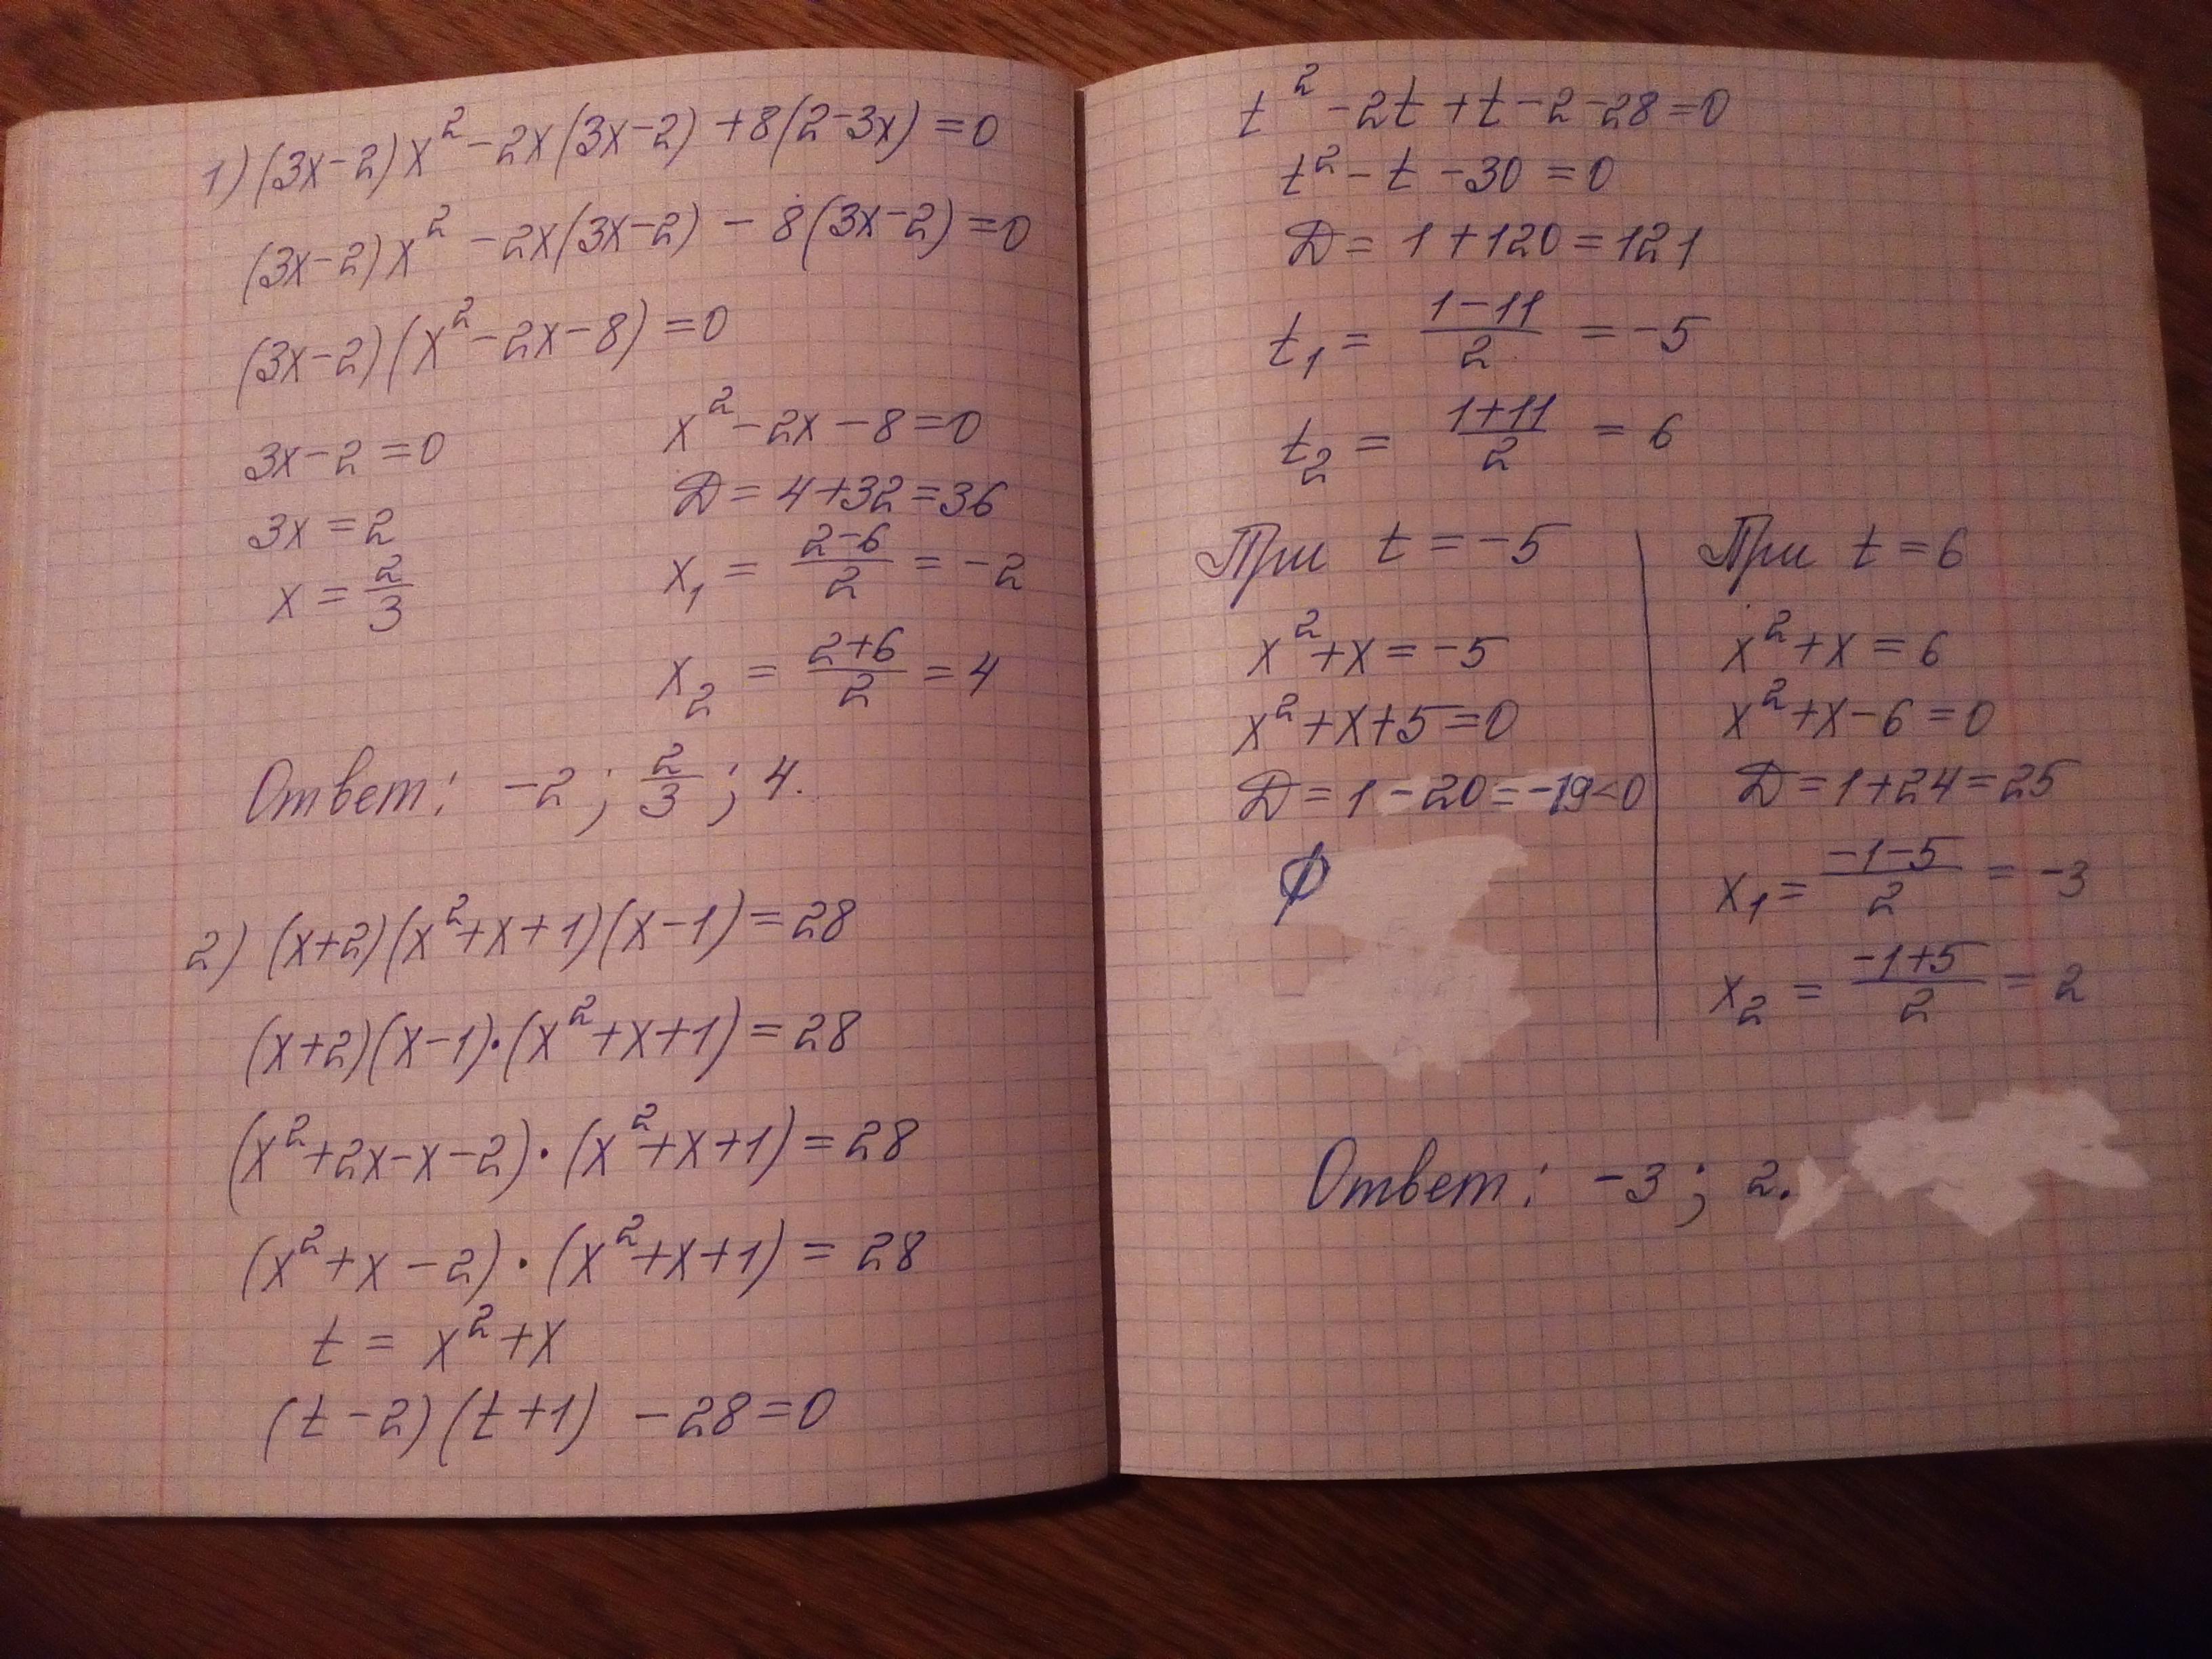 1) (3x-2)x² - 2x(3x-2) + 8(2-3x) = 0
(3x-2)x² - 2x(3x-2) - 8(3x-2) = 0
(3x-2)(x² - 2x - 8) = 0
3x - 2 = 0
3x = 2
x = 2/3
x² - 2x - 8 = 0
D = 4 + 32 = 36
x₁ = (2-6)/2 = -2
x₂ = (2+6)/2 = 4
Ответ: -2; 2/3; 4.
2) (x+2)(x²+x+1)(x-1) = 28
(x+2)(x-1)·(x²+x+1) = 28
(x²+2x-x-2)·(x²+x+1) = 28
(x²+x-2)·(x²+x+1) = 28
t = x²+x
(t-2)(t+1) - 28 = 0
t² - 2t + t - 2 - 28 = 0
t² - t - 30 = 0
D = 1 + 120 = 121
t₁ = (1-11)/2 = -5
t₂ = (1+11)/2 = 6
При t = -5
x² + x = -5
x² + x + 5 = 0
D = 1 - 20 = -19 < 0
∅
При t = 6
x² + x = 6
x² + x - 6 = 0
D = 1 + 24 = 25
x₁ = (-1-5)/2 = -3
x₂ = (-1+5)/2 = 2
Ответ: -3; 2.